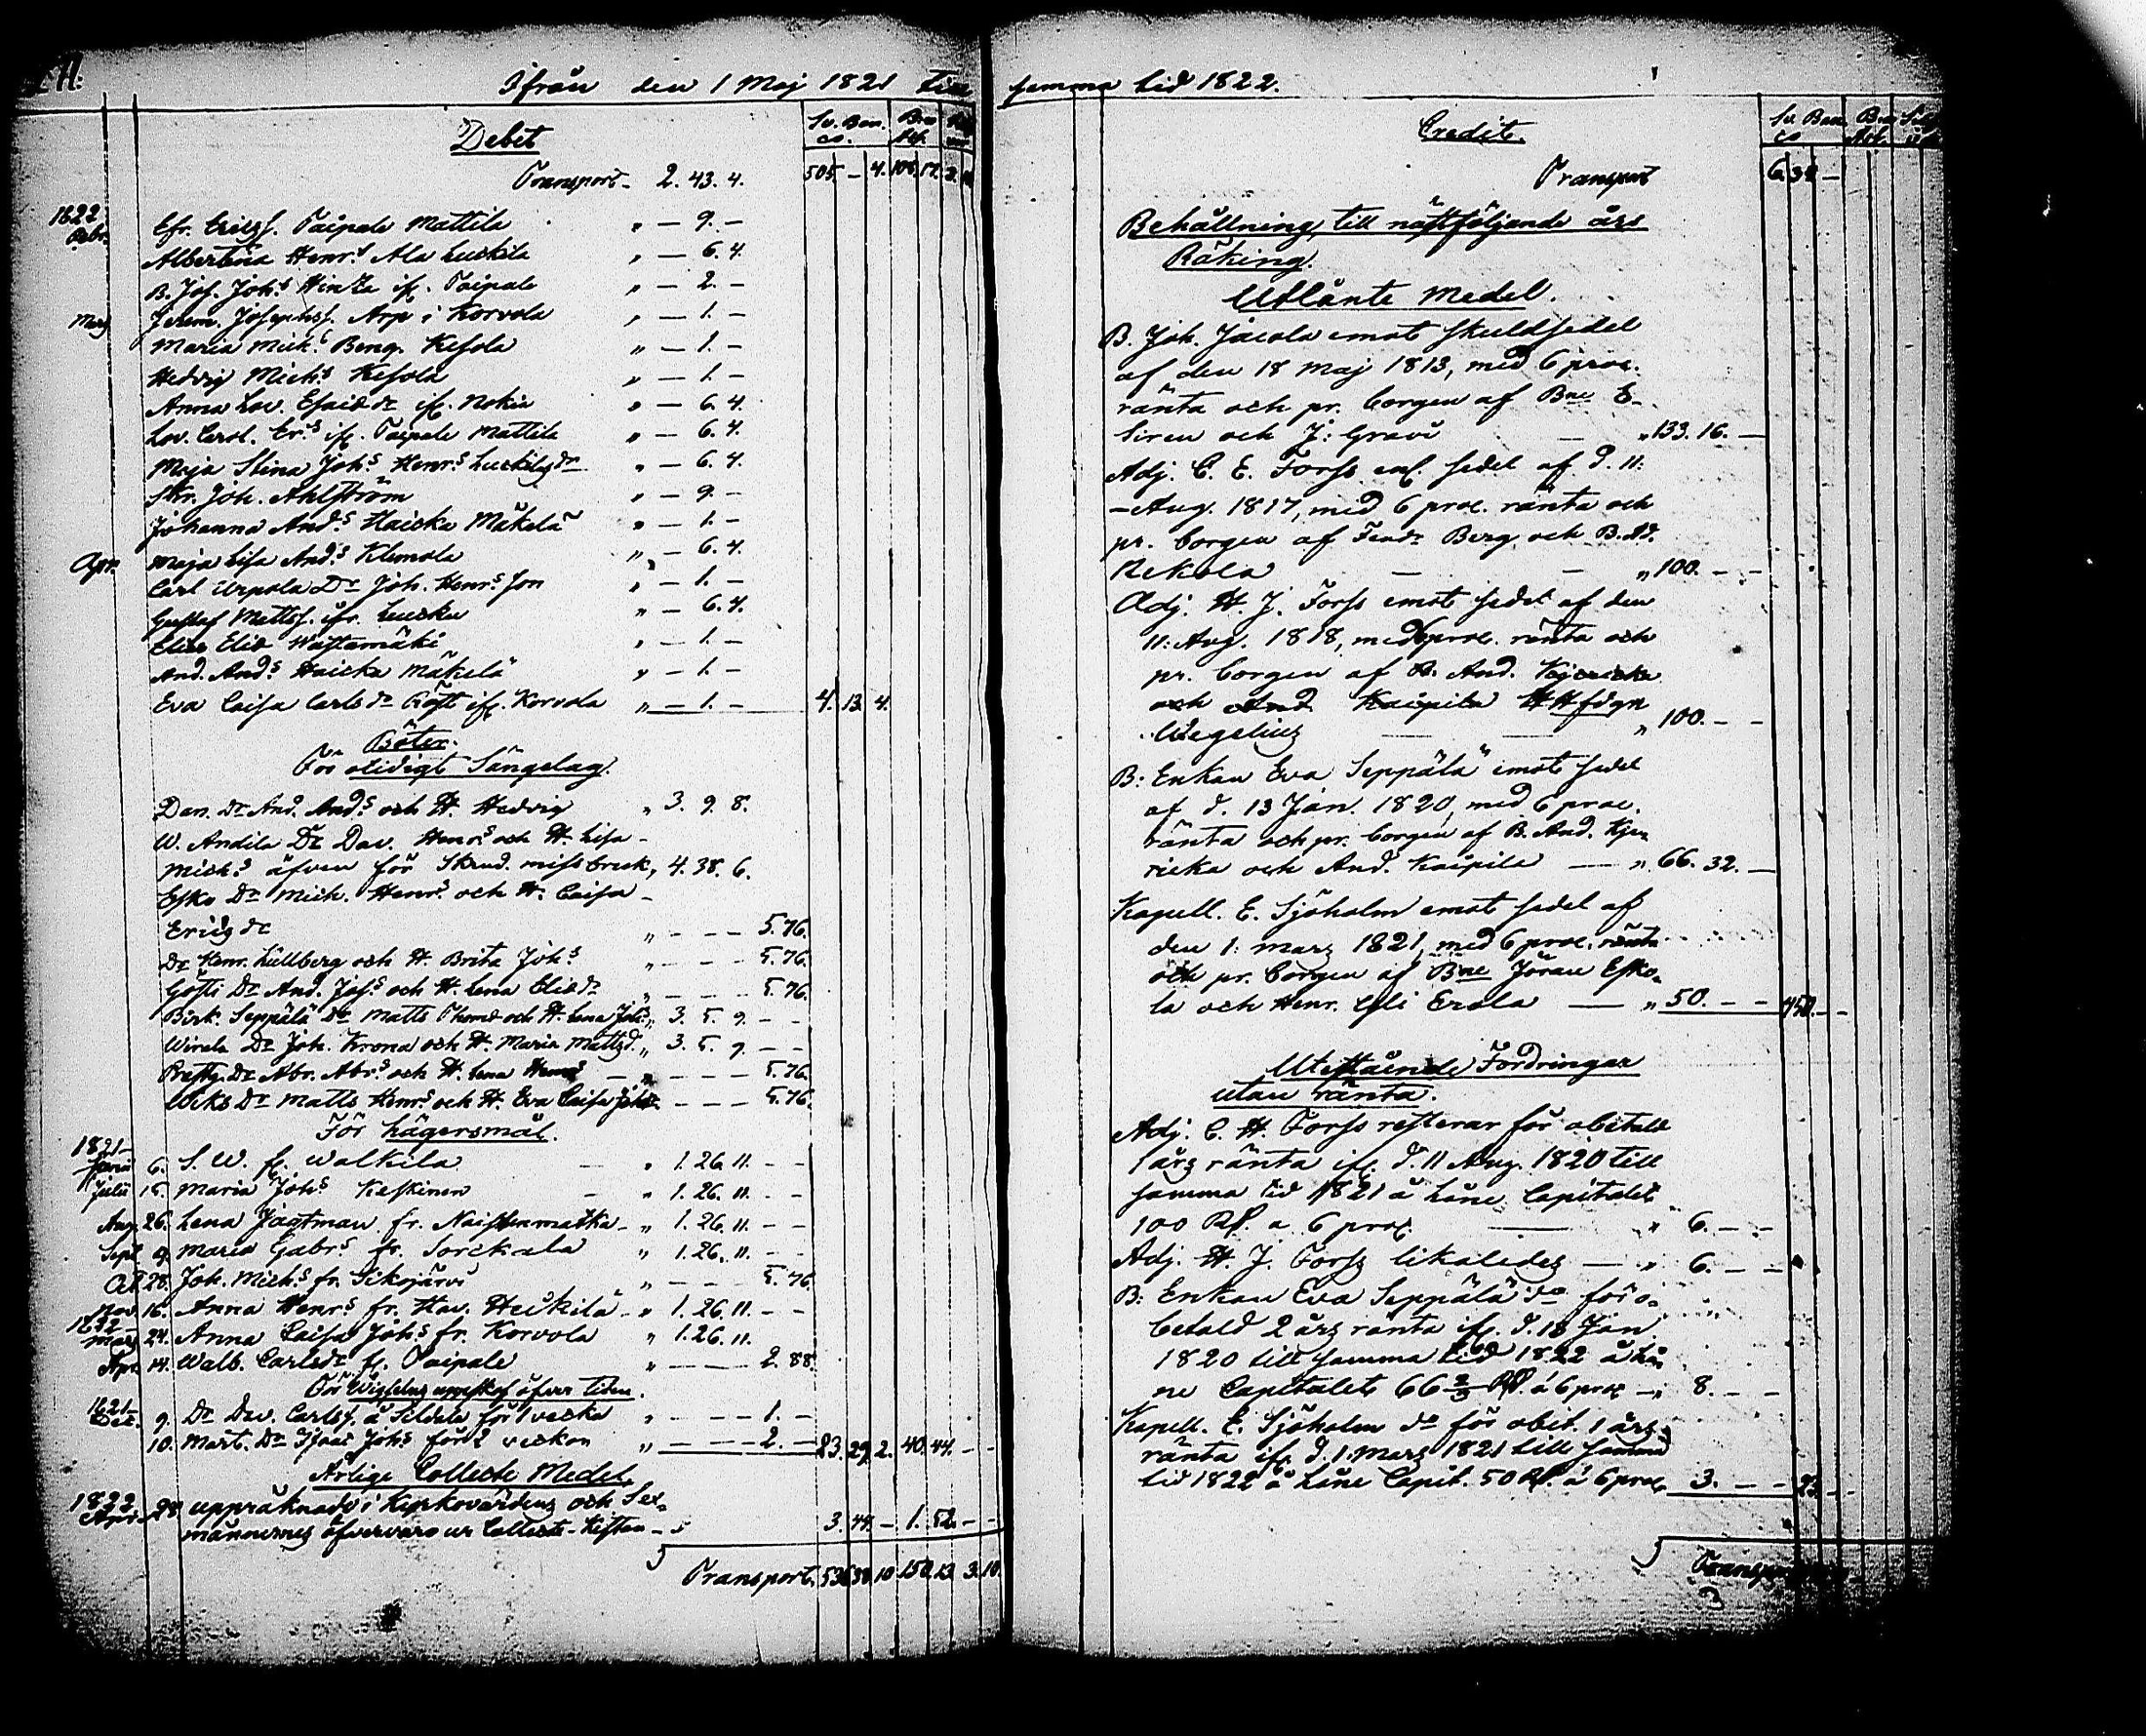 Ifrån den 1 Maj 1821 till
Debet
Sv. Ban. co.
Transport - 2. 43. 4. 505. - 4.
1822
Febr. Efr. Erikss. Taipale Mattila " - 9. -
Albertina Henr.s Ala Luckila " - 6. 4.
B. Jos. Joh.s Hinza if. Taipale " - 2. -
Mars Jerem. Josephss. Arp i Korvola " - 1. -
Maria Mich.s Beng. Kesola " - 1. -
Hedvig Mich.s Kesola " - 1. -
Anna Lov. Esaied.r if. Nokia " - 6. 4.
Lov. Carol. Er.s if. Taipale Mattila " - 6. 4.
Maja Stina Joh.s Henr.s " - 6. 4.
Skr. Joh. Ahlström " - 9. -
Johanna And.s Haicka Mäkelä " - 1. -
Apr. Maja Lisa And.s Klemola " - 6. 4.
Carl Urpola Dr Joh. Henr.s Son " - 1. -
Gustaf Mattss. ifr. " - 6. 4.
Elias Elias Wastamäki " - 1. -
And. And.s Haicka Mäkelä " - 1. -
Eva Caisa Carlsdr if. Korvola " - 1. - 4. 13. 4.
Böter.
För otidigt Sängelag.
Dan. Dr And. And.s och H. Hedvig " 3. 9. 8.
W. Andila Dr Dav. Henr.s och H. Lisa -
Mich.s äfven för Skrud. missbruk, 4. 38. 6.
Esko Dr Mich. Henr.s och H. Caisa -
" - - - 5. 76.
Dr Henr. Lillberg och H. Brita Joh.s " - - - 5. 76.
Götti Dr And. Jos.s och H. Lena Eliedr " - - - 5. 76.
Birk. Seppälä Dr Matts och H. Lena Joh.s " 3. 5. 9. - -
Dr Joh. Krona och H. Maria Mattsd. " 3. 5. 9. - -
Dr Abr. Abr.s och H. Lena Henr.s - - - 5. 76.
Dr Matts Henr.s och H. Eva Caisa - - - 5. 76.
För Lägersmål.
1821
6. S. W. fr. Walkila - " 1. 26. 11. - -
Julii 15. Maria Joh.s Keskinen - " 1. 26. 11. - -
Aug. 26. Lena Jagtman fr. Naistenmatka - " 1. 26. 11. - -
Sept. 9. Maria Gabr.s fr. Sorckala " 1. 26. 11. - -
28. Joh. Mich.s fr. Sikojärvi " - - - 5. 76.
Nov. 16. Anna Henr.s fr. Hav. Heickilä - " 1. 26. 11. - -
1822
Mars 24. Anna Caisa Joh.s fr. Korvola " 1. 26. 11.
Apr. 14. Walb. Carlsdr fr. Taipale " - - - 2. 88
För Wigselns uppskof öfver tiden.
1821
Dec. 9. Dr Dav. Carlss. å Sildala för 1 vecka " - - - 1. -
10. Mart. Dr Isaac Joh.s för 2 veckor " - - - 2. - 23. 29. 2. 40. 44. - -
Årlige Collecte Medel.
1822
Apr. 28 uppräknade i Kyrkovärdens och Sex-
männernes öfvervaro ur Collecte-Kistan - 3. 44. - 1. 52. - -
Transport. 536. 38. 10 150. 13. 3. 10.
samma tid 1822.
Credit.
Transport 6. 32 -
Behållning till nästföljande års
Räkning.
Utlånte Medel.
B. Joh. Jaicola emot skuldsedel
af den 18 Maj 1813, med 6 proc.
ränta och pr. borgen af Bne E.
Siren och J: Gravi - " 133. 16. -
Adj. C. E. Forss em. sedel af d. 11:
-Aug. 1817, med 6 proc. ränta och
pr. borgen af Berg och B.
Rekola - - " 100. - -
Adj. H. J. Forss emot sedel af den
11: Aug. 1818, med 6 proc. ränta och
pr. borgen af B. And.
och And. Kaipila
Wegelius " 100. - -
B: Enkan Eva Seppälä emot sedel
af d. 13 Jan. 1820, med 6 proc.
ränta och pr. borgen af B. And. Kje-
ricka och And. Kaipila - " 66. 32. -
Kapell. E. Sjöholm emot sedel af
den 1: Mars 1821, med 6 proc. ränta
och pr. borgen af Bne Jöran Esko-
la och Henr. Erola - " 50. - - 450. - -
Utestående Fordringar
utan ränta.
Adj. C. H. Forss resterar för obetald
1 års ränta if. d. 11 Aug. 1820 till
samma tid 1821 å låne Capitalet
100 Rd. a 6 proc. " 6. - -
Adj. H. J. Forss likaledes - " 6. - -
B: Enkan Eva Seppälä do för o-
betald 2 års ränta if. d. 13 Jan.
1820 till samma tid 1822 å Lå-
ne Capitalet 66 2/3 Rd. á 6 proc - " 8. - -
Kapell. E. Sjöholm do för obet. 1 års
ränta if. d. 1. Mars 1821 till samma
tid 1822 å låne Capit. 50 Rd. á 6 proc. 3. - - 23. - -
Transport